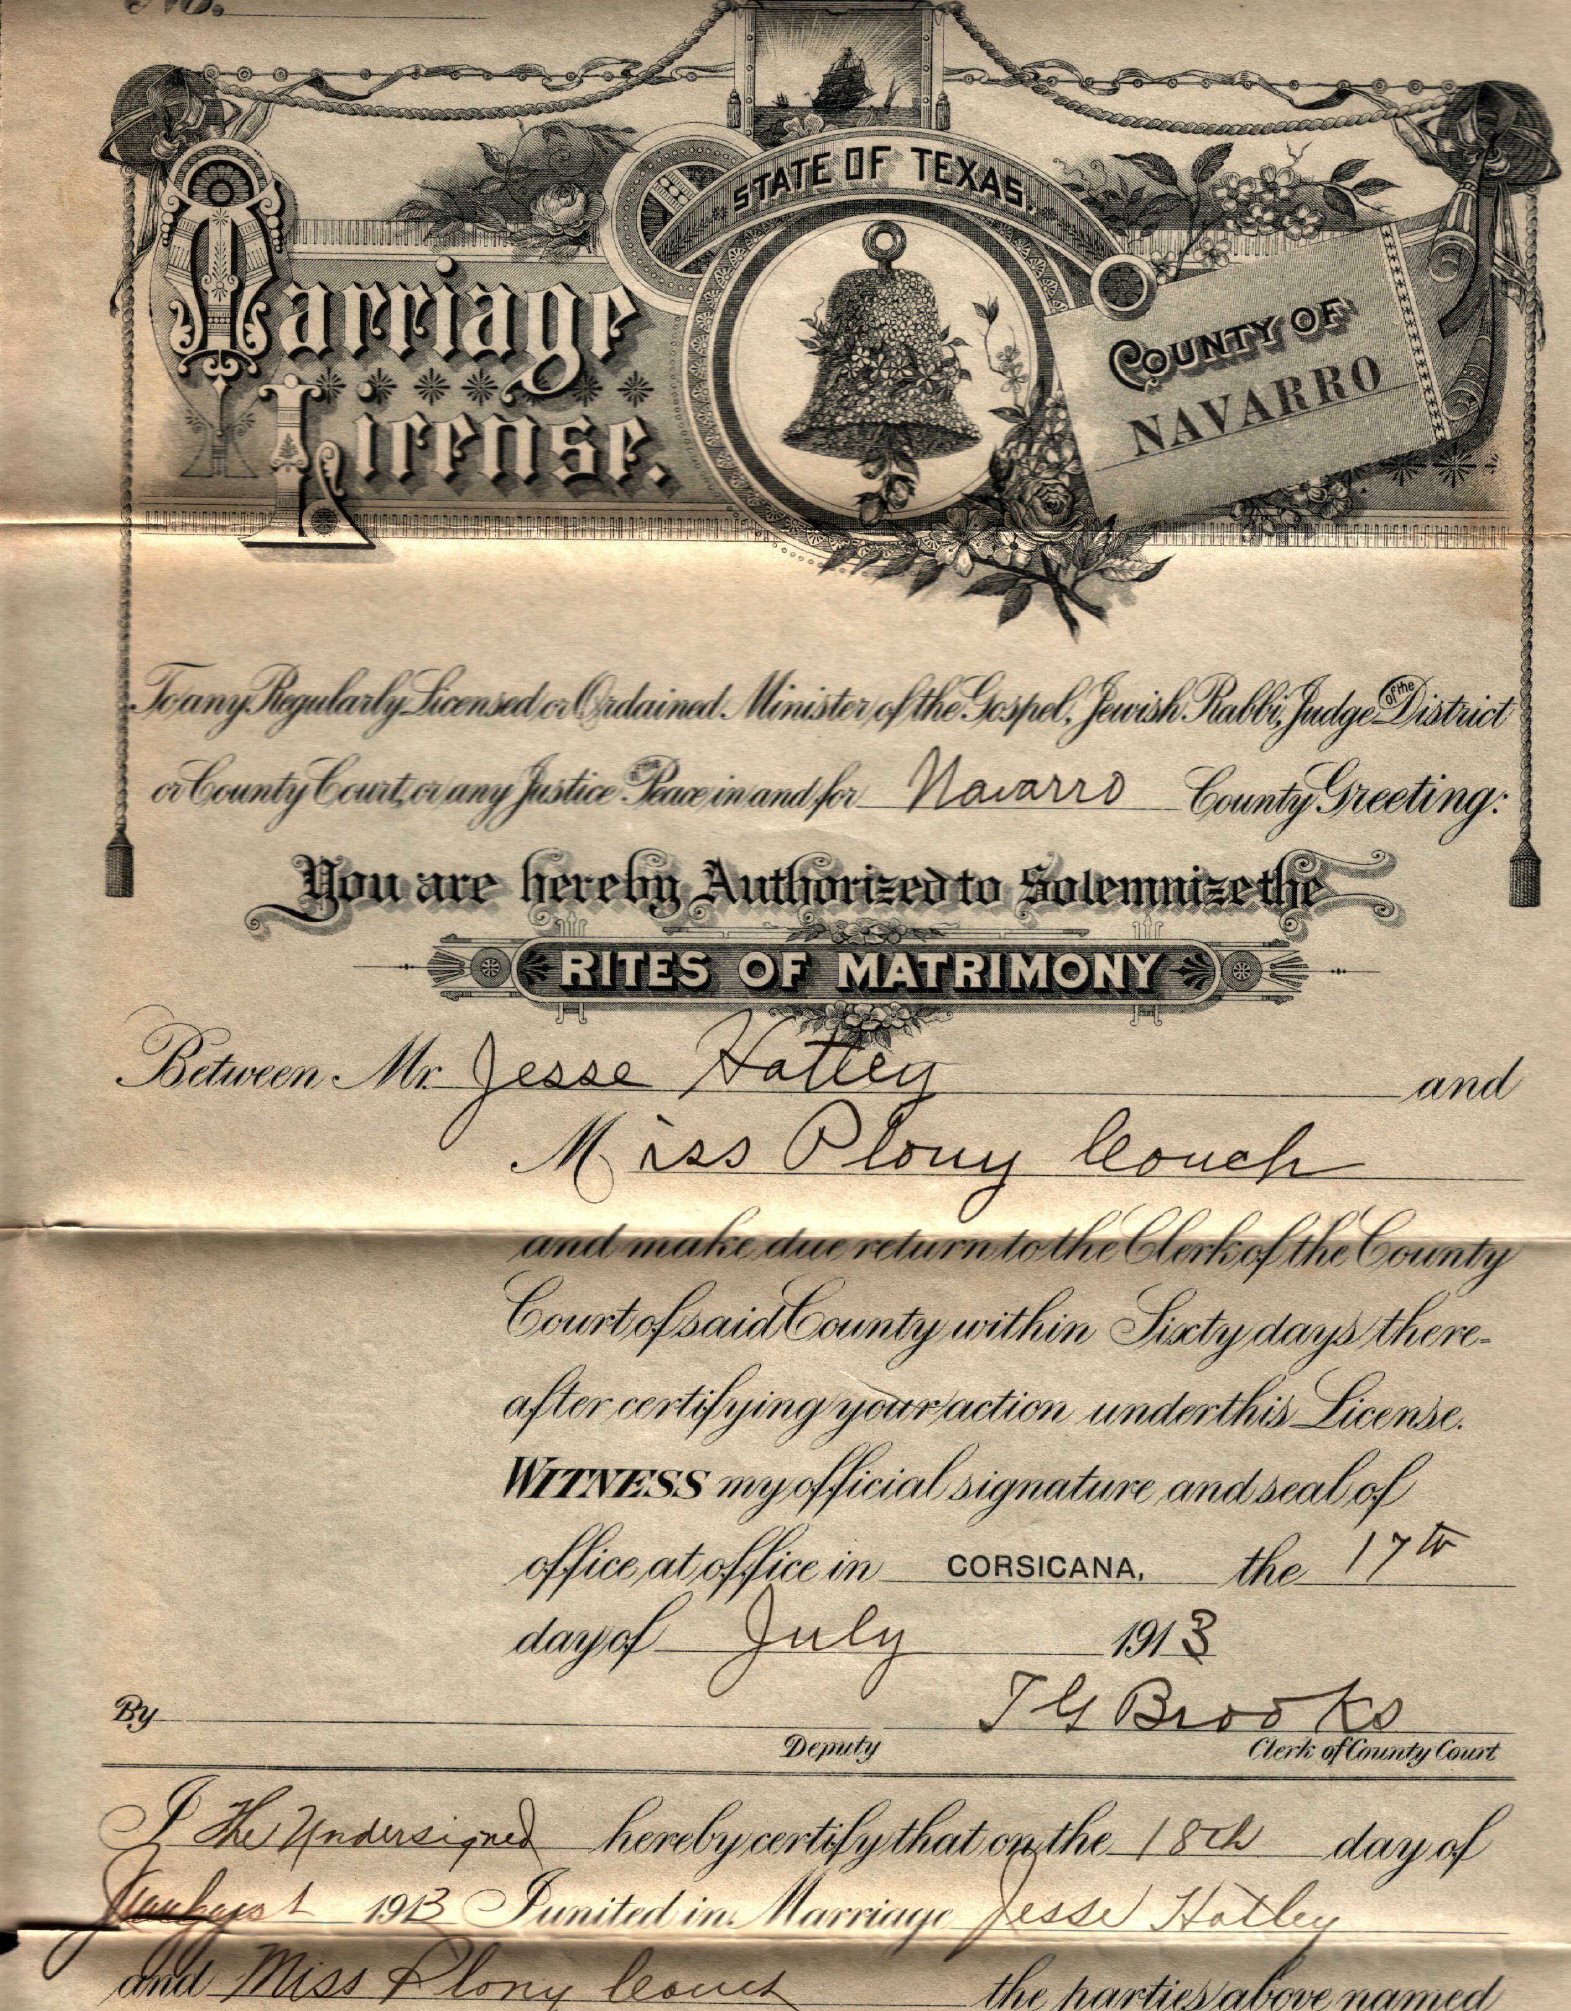 No.
STATE OF TEXAS.
Marriage
License.
COUNTY OF
NAVARRO
To any Regularly Licensed or Ordained Minister of the Gospel, Jewish Rabbi, Judge of the District
or County Court, or any Justice of the Peace in and for Navarro County Greeting:
You are hereby Authorized to Solemnize the
RITES OF MATRIMONY
Between Mr. Jesse Hatley and
Miss Plony Couch
and make due return to the Clerk of the County
Court of said County within Sixty days there-
after certifying your action under this License.
WITNESS my official signature and seal of
office, at office in CORSICANA, the 17th
day of July 1913
T G Brooks
By Deputy Clerk of County Court
I The Undersigned hereby certify that on the 18th day of
1913 I united in Marriage Jesse Hatley
and Miss Plony Couch the parties above named